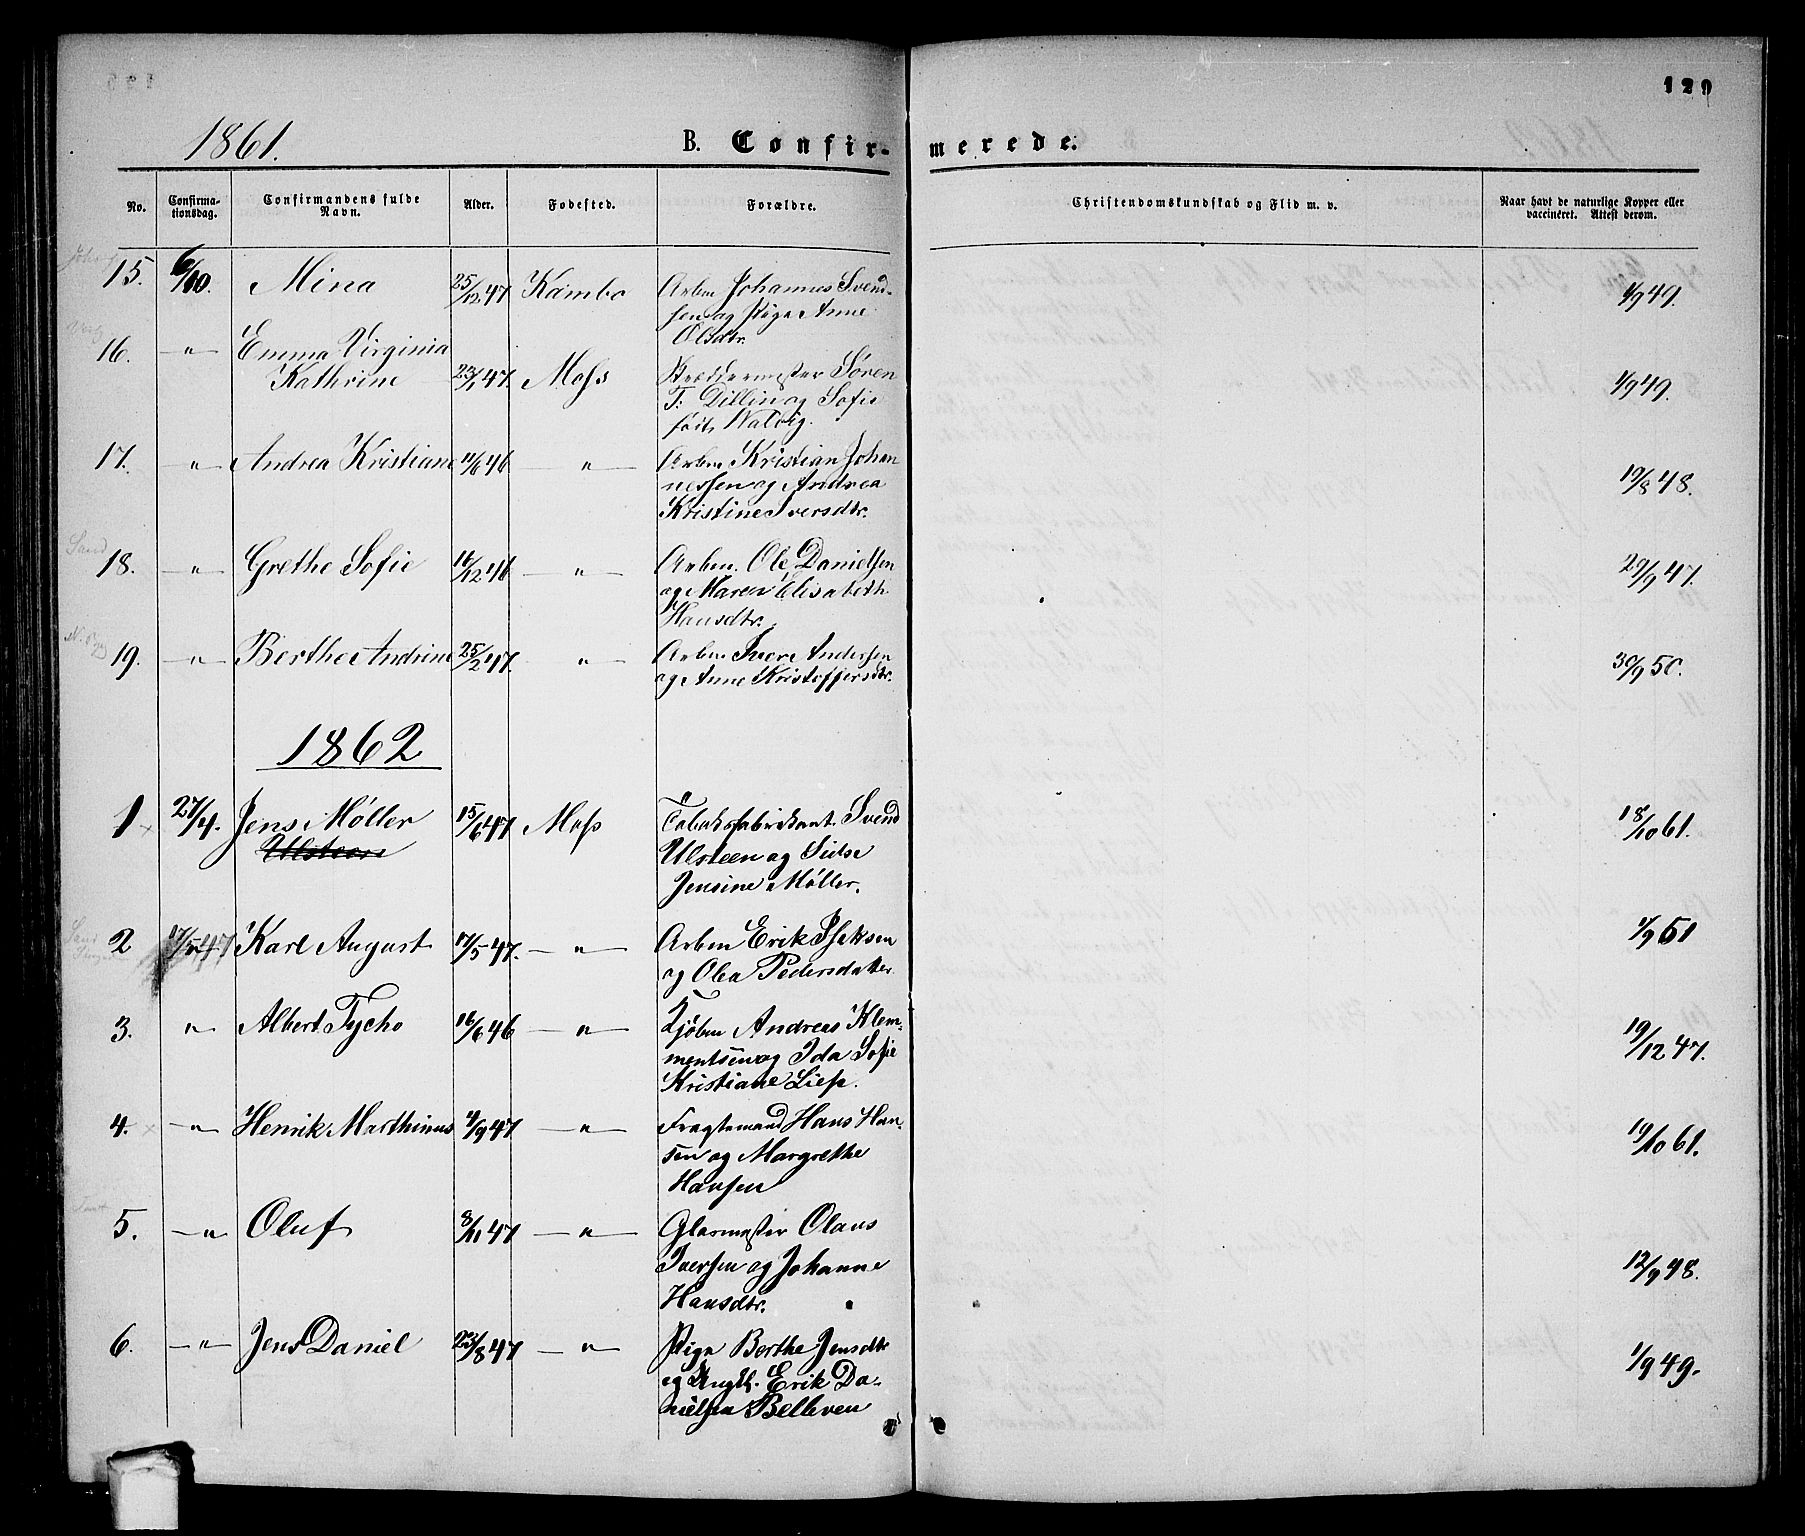 129
1861.
B. Confir-
merede.
No.
Confirma-
tionsdag.
Confirmandens fulde
Navn.
Alder.
Fødested.
Forældre.
Christendomskundskab og Flid m. v.
Naar havt de naturlige Kopper eller
vaccineret. Attest derom.
15. 6/10. Mina 25/12 47 Kambo Arbm Johannes Svend-
sen og Pige Anne
Olsdtr.
1/9 49.
16. " Emma Virginia
Kathrine 23/1 47. Moss Skræddermester Søren
T. Dillin og Sofie
født Walvig.
1/9 49.
17. " Andrea Kristiane 11/6 46 " Arbm Kristian Johan
nessen og Andrea
Kristine Iversdtr.
19/8 48.
Sand
18. " Grethe Sofie 16/12 46 " Arbm. Ole Danielsen
og Maren Elisabeth
Hansdtr.
29/9 47.
19. " Berthe Andrine 25/2 47. " Arbm Iver Andersen
og Anne Kristoffersdtr.
30/9 50.
1862
1 27/4. Jens Møller
Ulsteen 15/6 47 Moss Tobaksfabrikant Svend
Ulsteen og Sidse
Jensine Møller.
18/10 61.
2 17/5 47 Karl August 17/5 47. " Arbm Erik Isaksen
og Olea Pedersdatter
1/9 51
3. " Albert Tycho 16/6 46 " Kjøbm Andreas Klem-
mentsen og Ida Sofie
Kristiane Liess.
19/12 47.
4. " Henrik Marthinus 4/9 47 " Fragtemand Hans Han-
sen og Margrethe
Hansen
19/10 61.
5. " Oluf 8/11 47 " Glasmester Olaus
Iversen og Johanne
Hansdtr.
12/9 48.
6. " Jens Daniel 23/8 47 " Pige Berthe Jensdtr
og Ungk. Erik Da-
nielsen Belleven
1/9 49.